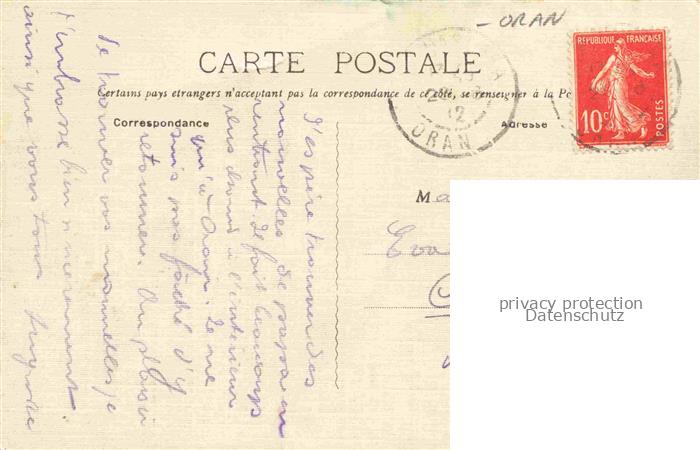 - ORAN
CARTE POSTALE
Certains pays etrangers n'acceptant pas la correspondance de ce côté, se renseigner à la Po
Correspondance
Adresse
RÉPUBLIQUE FRANÇAISE
10c
POSTES
ORAN
12
M
J'espère trouver des
nouvelles de papa en
rentrant. Il fait beaucoup
plus chaud à l'intérieur
qu'à Oran. Je ne
suis pas fâché d'y
retourner. Au plaisir
de trouver vos nouvelles je
t'embrasse bien sincèrement
ainsi que vous tous
privacy protection
Datenschutz